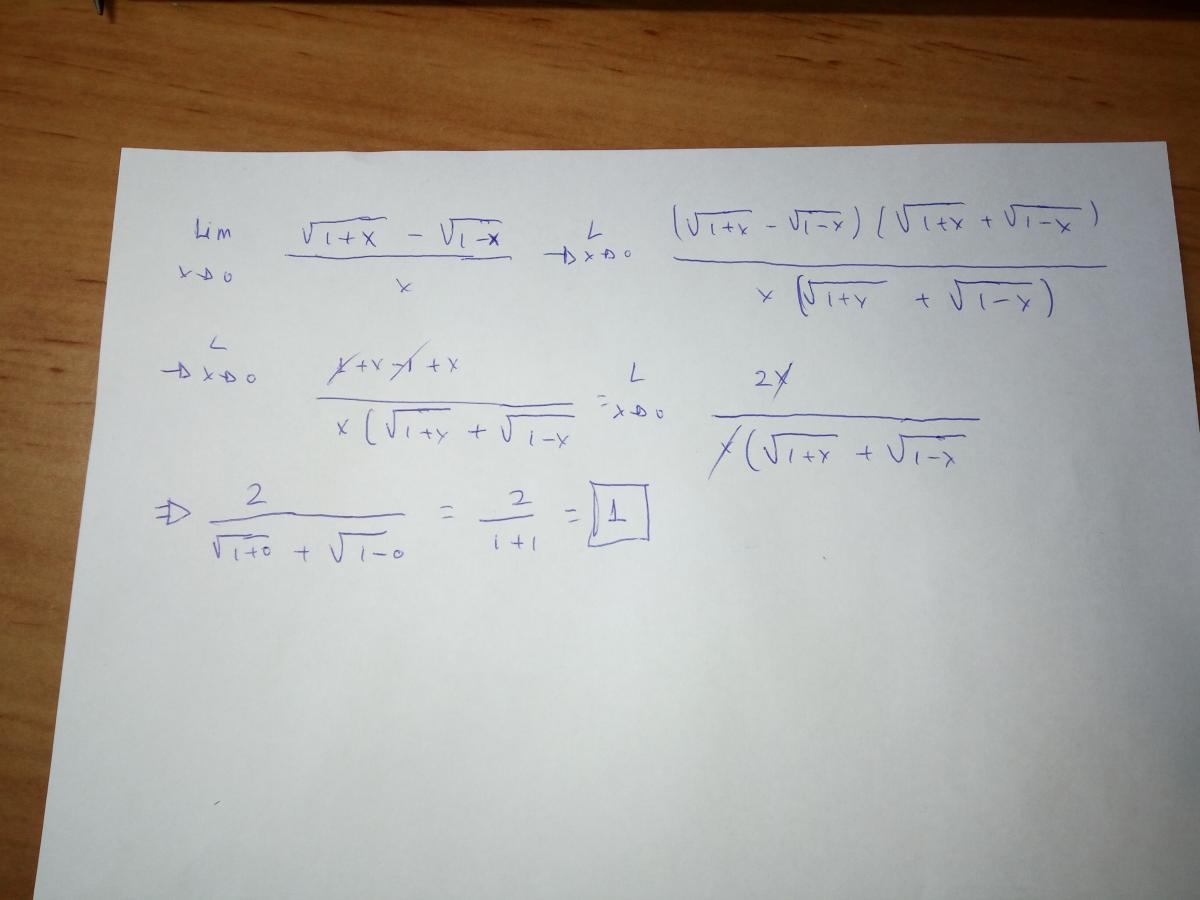 Lim x→0 (√(1+x) - √(1-x)) / x → L x→0 ((√(1+x) - √(1-x)) (√(1+x) + √(1-x))) / (x (√(1+x) + √(1-x)))
→ L x→0 (1+x-1+x) / (x (√(1+x) + √(1-x) = L x→0 2x / (x (√(1+x) + √(1-x)
⇒ 2 / (√(1+0) + √(1-0)) = 2 / (1+1) = 1